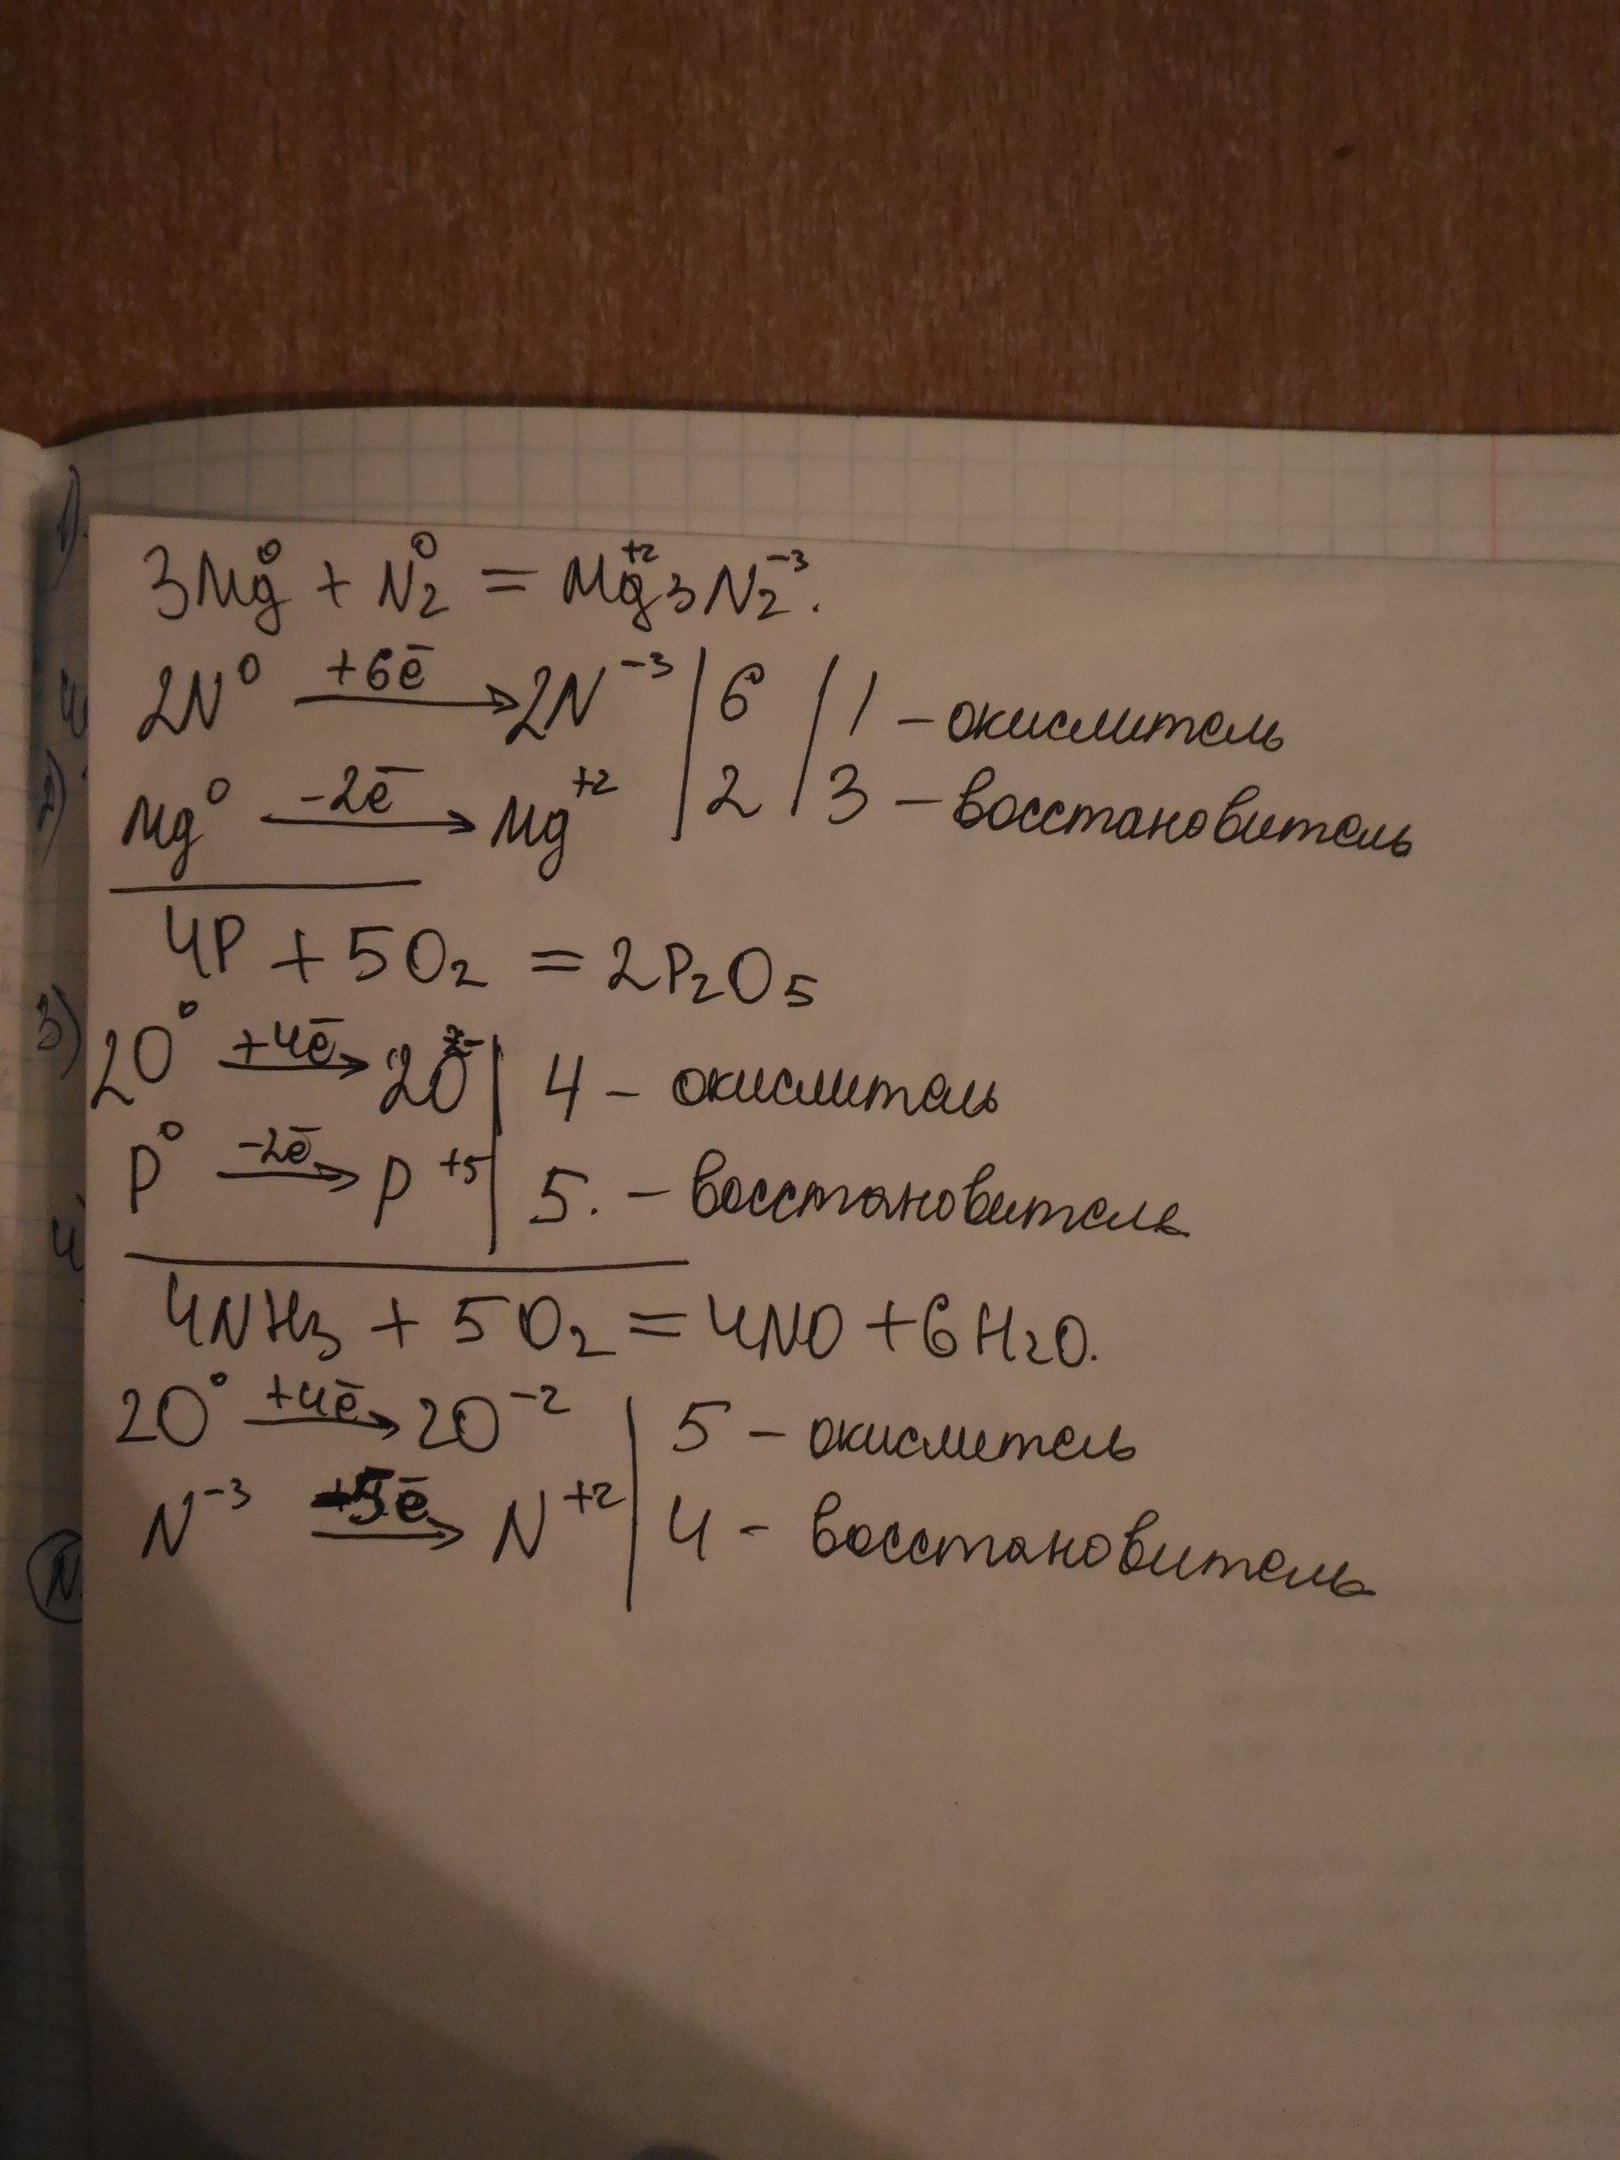 3Mg⁰ + N₂⁰ = Mg⁺²₃N₂⁻³.
2N⁰ +6ē→ 2N⁻³ | 6 | 1 – окислитель
Mg⁰ -2ē→ Mg⁺² | 2 | 3 – восстановитель
4P + 5O₂ = 2P₂O₅
2O⁰ +4ē→ 2O²⁻ | 4 – окислитель
P⁰ -2ē→ P⁺⁵ | 5. – восстановитель
4NH₃ + 5O₂ = 4NO + 6H₂O.
2O⁰ +4ē→ 2O⁻² | 5 – окислитель
N⁻³ -5ē→ N⁺² | 4 – восстановитель
1)
2)
3)